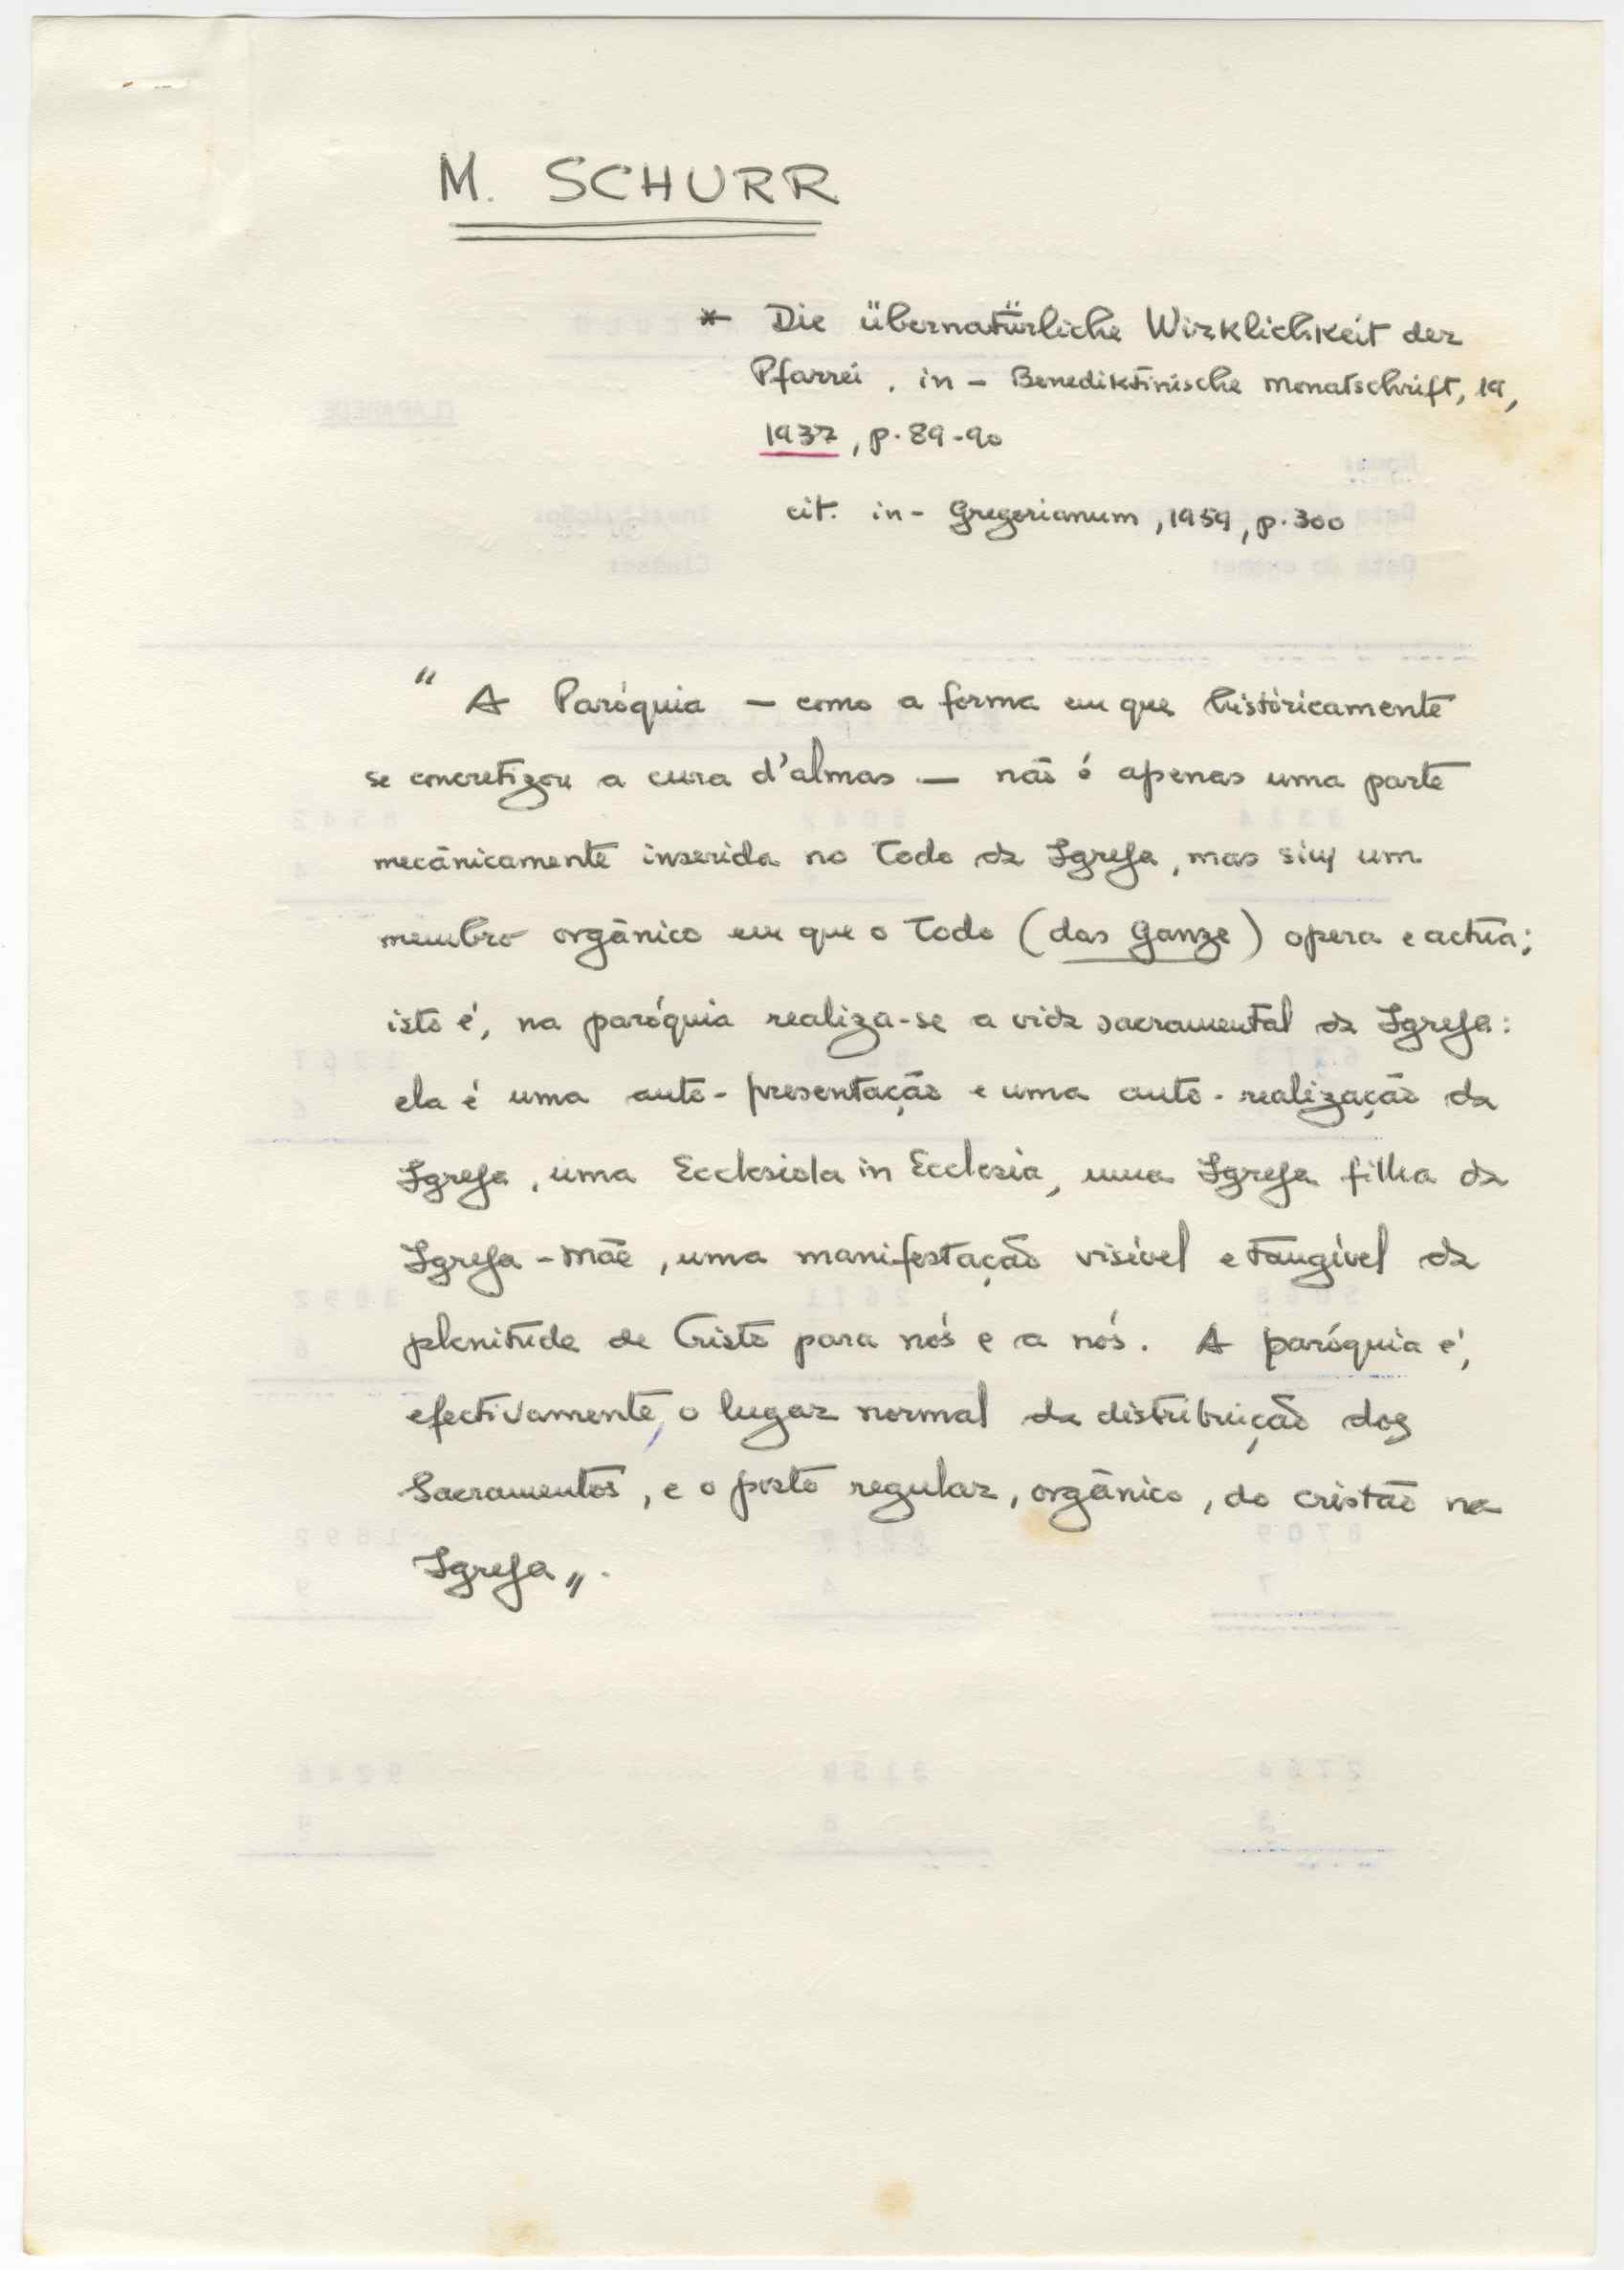 M. SCHURR
* Die übernatürliche Wirklichkeit der
Pfarrei. in - Benediktinische Monatschrift, 19,
1937, p. 89-90
cit. in - Gregorianum, 1959, p. 300
" A Paróquia — como a forma em que històricamente
se concretizou a cura d'almas — não é apenas uma parte
mecânicamente inserida no Todo da Igreja, mas sim um
membro orgânico em que o Todo (das Ganze) opera e actúa;
isto é, na paróquia realiza-se a vida sacramental da Igreja:
ela é uma auto-presentação e uma auto-realização da
Igreja, uma Ecclesiola in Ecclesia, uma Igreja filha da
Igreja-Mãe, uma manifestação visível e tangível da
plenitude de Cristo para nós e a nós. A paróquia é,
efectivamente, o lugar normal da distribuição dos
Sacramentos, e o posto regular, orgânico, do cristão na
Igreja ".